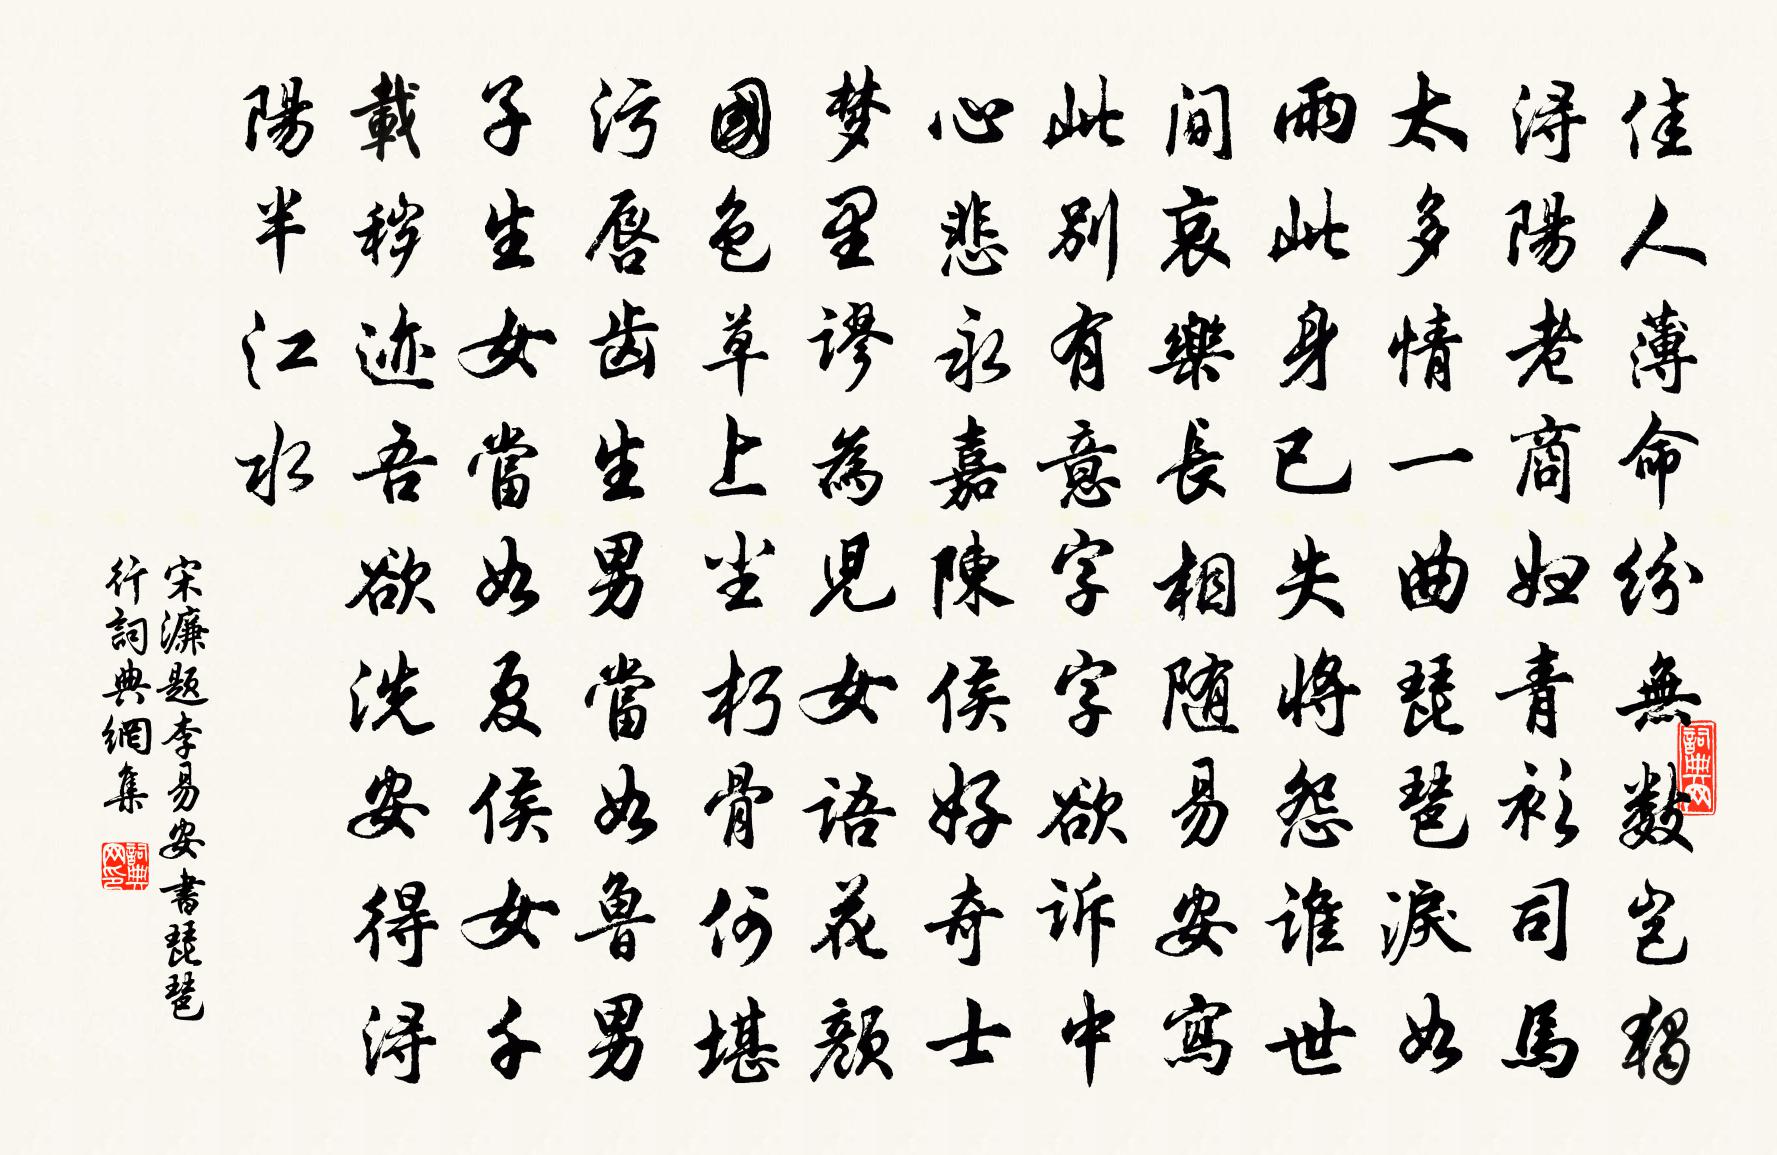 佳人薄命紛無數豈獨
浔陽老商妇青衫司馬
太多情一曲琵琶淚如
雨此身已失將怨誰世
间哀樂長相随易安寫
此别有意字字欲诉中
心悲永嘉陳侯好奇士
梦里谬為児女語花顔
國色草上尘朽骨何堪
污唇齿生男當如魯男
子生女當如夏侯女千
載秽迹吾欲洗安得浔
陽半江水
宋濂题李易安書琵琶
行詞典網集
詞典网
詞典网印